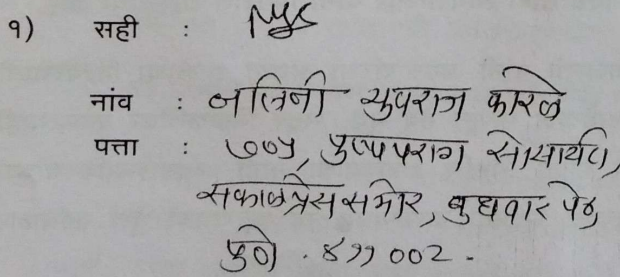 १) सही :
नांव : नलिनी युवराज कोरले
पत्ता : ७७५, पुष्पपराग सोसायटी,
सकाळप्रेस समोर, बुधवार पेठ,
पुणे. ४११००२.